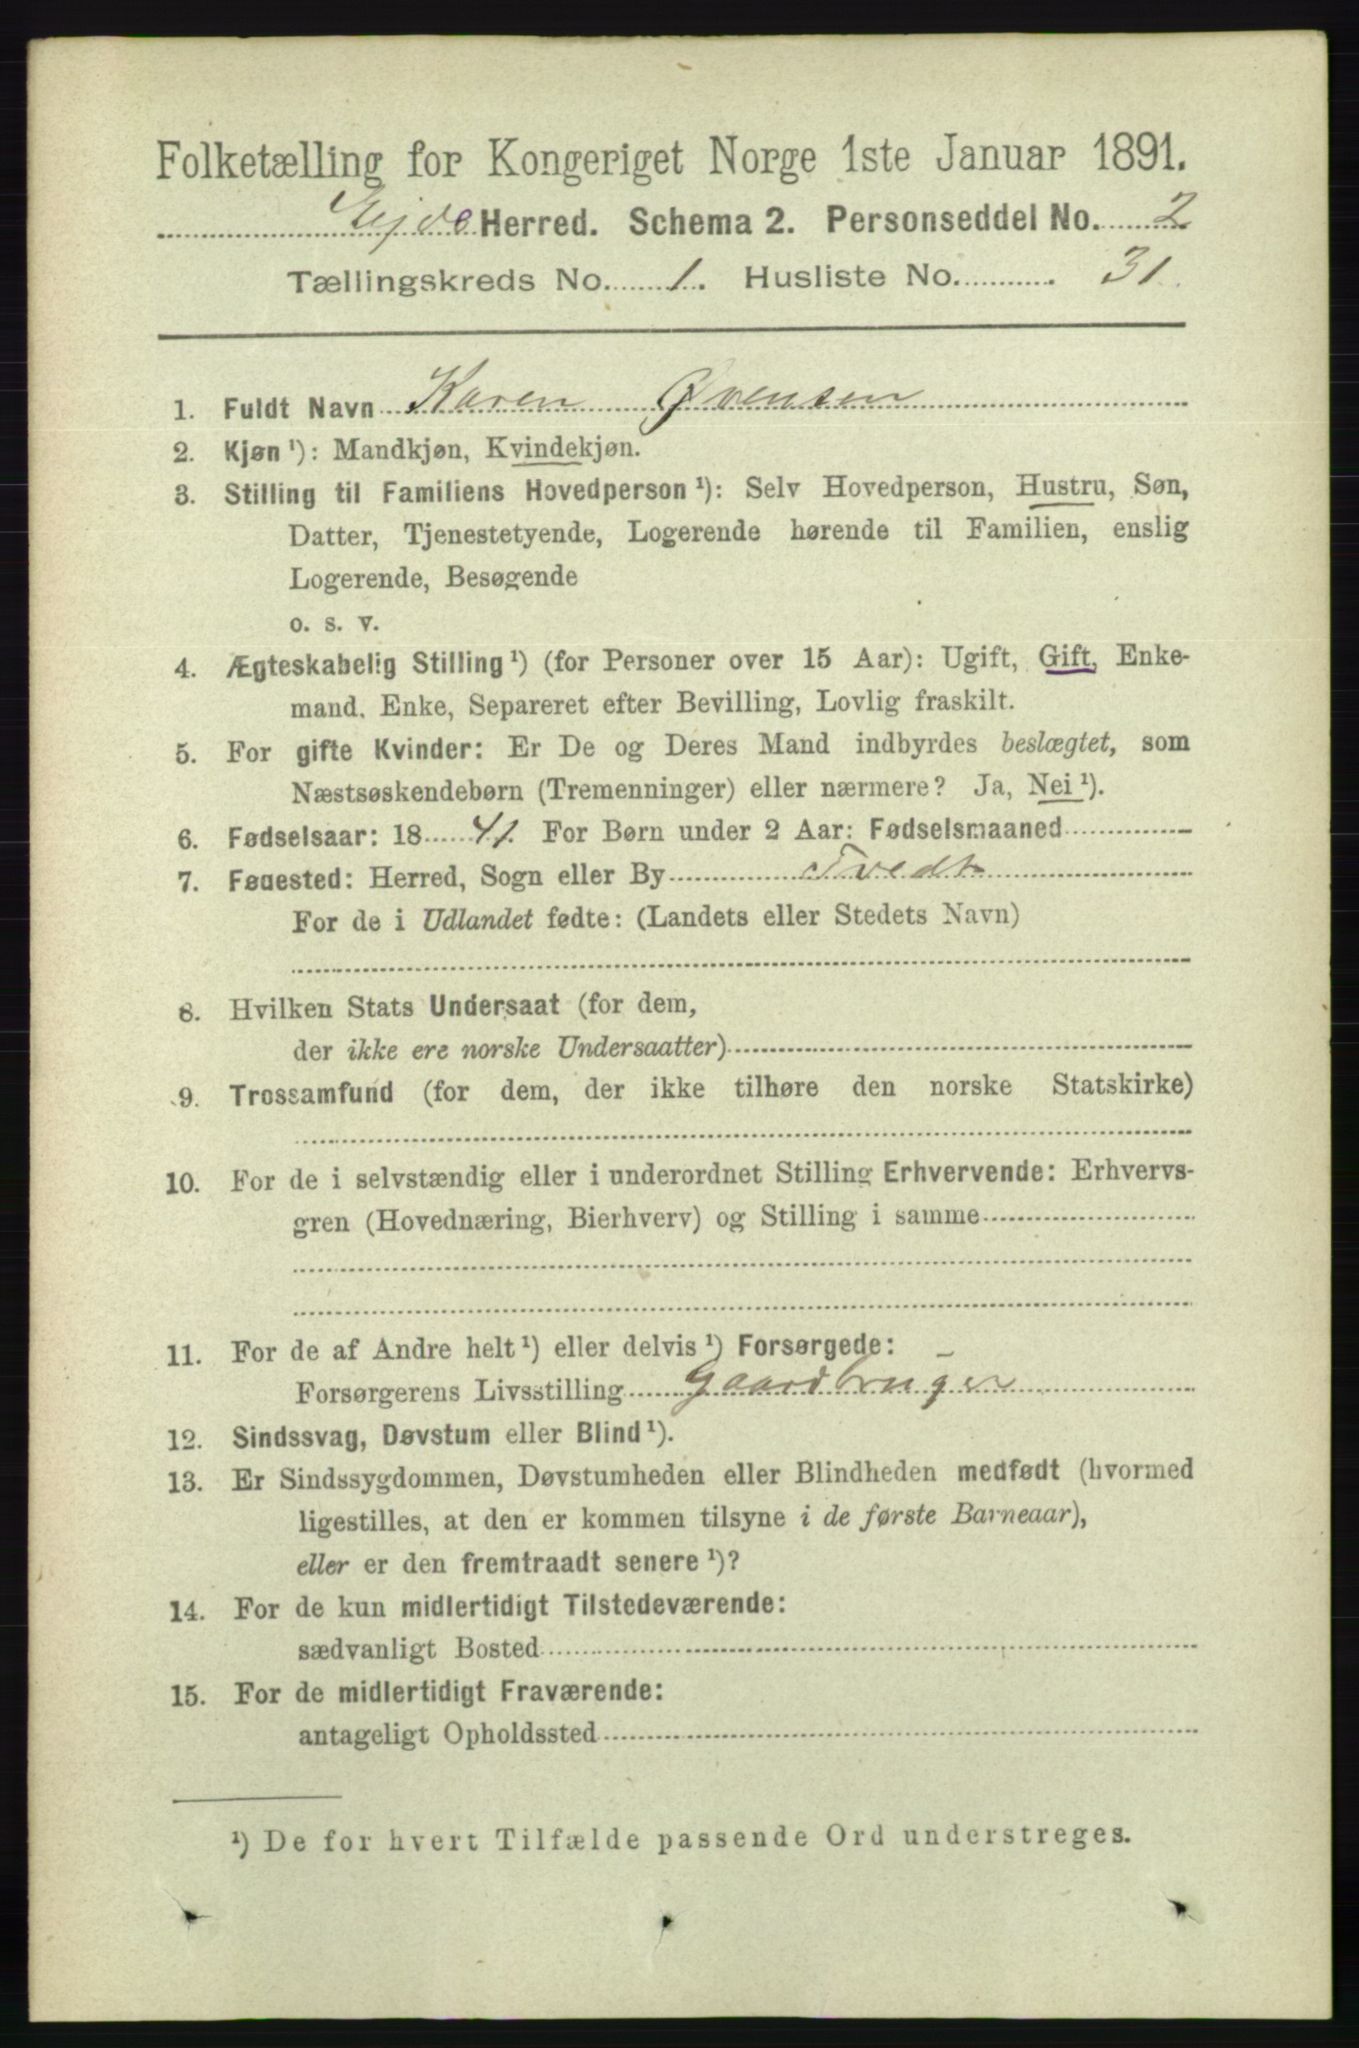 Folketælling for Kongeriget Norge 1ste Januar 1891.
Ejde Herred. Schema 2. Personseddel No. 2
Tællingskreds No. 1. Husliste No. 31
1. Fuldt Navn Karen Øvensen
2. Kjøn ¹): Mandkjøn, Kvindekjøn.
3. Stilling til Familiens Hovedperson ¹): Selv Hovedperson, Hustru, Søn,
Datter, Tjenestetyende, Logerende hørende til Familien, enslig
Logerende, Besøgende
o. s. v.
4. Ægteskabelig Stilling ¹) (for Personer over 15 Aar): Ugift, Gift, Enke-
mand, Enke, Separeret efter Bevilling, Lovlig fraskilt.
5. For gifte Kvinder: Er De og Deres Mand indbyrdes beslægtet, som
Næstsøskendebørn (Tremenninger) eller nærmere? Ja, Nei ¹).
6. Fødselsaar: 18 41. For Børn under 2 Aar: Fødselsmaaned
7. Føaested: Herred, Sogn eller By Tvedt
For de i Udlandet fødte: (Landets eller Stedets Navn)
8. Hvilken Stats Undersaat (for dem,
der ikke ere norske Undersaatter)
9. Trossamfund (for dem, der ikke tilhøre den norske Statskirke)
10. For de i selvstændig eller i underordnet Stilling Erhvervende: Erhvervs-
gren (Hovednæring, Bierhverv) og Stilling i samme
11. For de af Andre helt ¹) eller delvis ¹) Forsørgede:
Forsørgerens Livsstilling Gaardbruger
12. Sindssvag, Døvstum eller Blind ¹).
13. Er Sindssygdommen, Døvstumheden eller Blindheden medfødt (hvormed
ligestilles, at den er kommen tilsyne i de første Barneaar),
eller er den fremtraadt senere ¹)?
14. For de kun midlertidigt Tilstedeværende:
sædvanligt Bosted
15. For de midlertidigt Fraværende:
antageligt Opholdssted
¹) De for hvert Tilfælde passende Ord understreges.